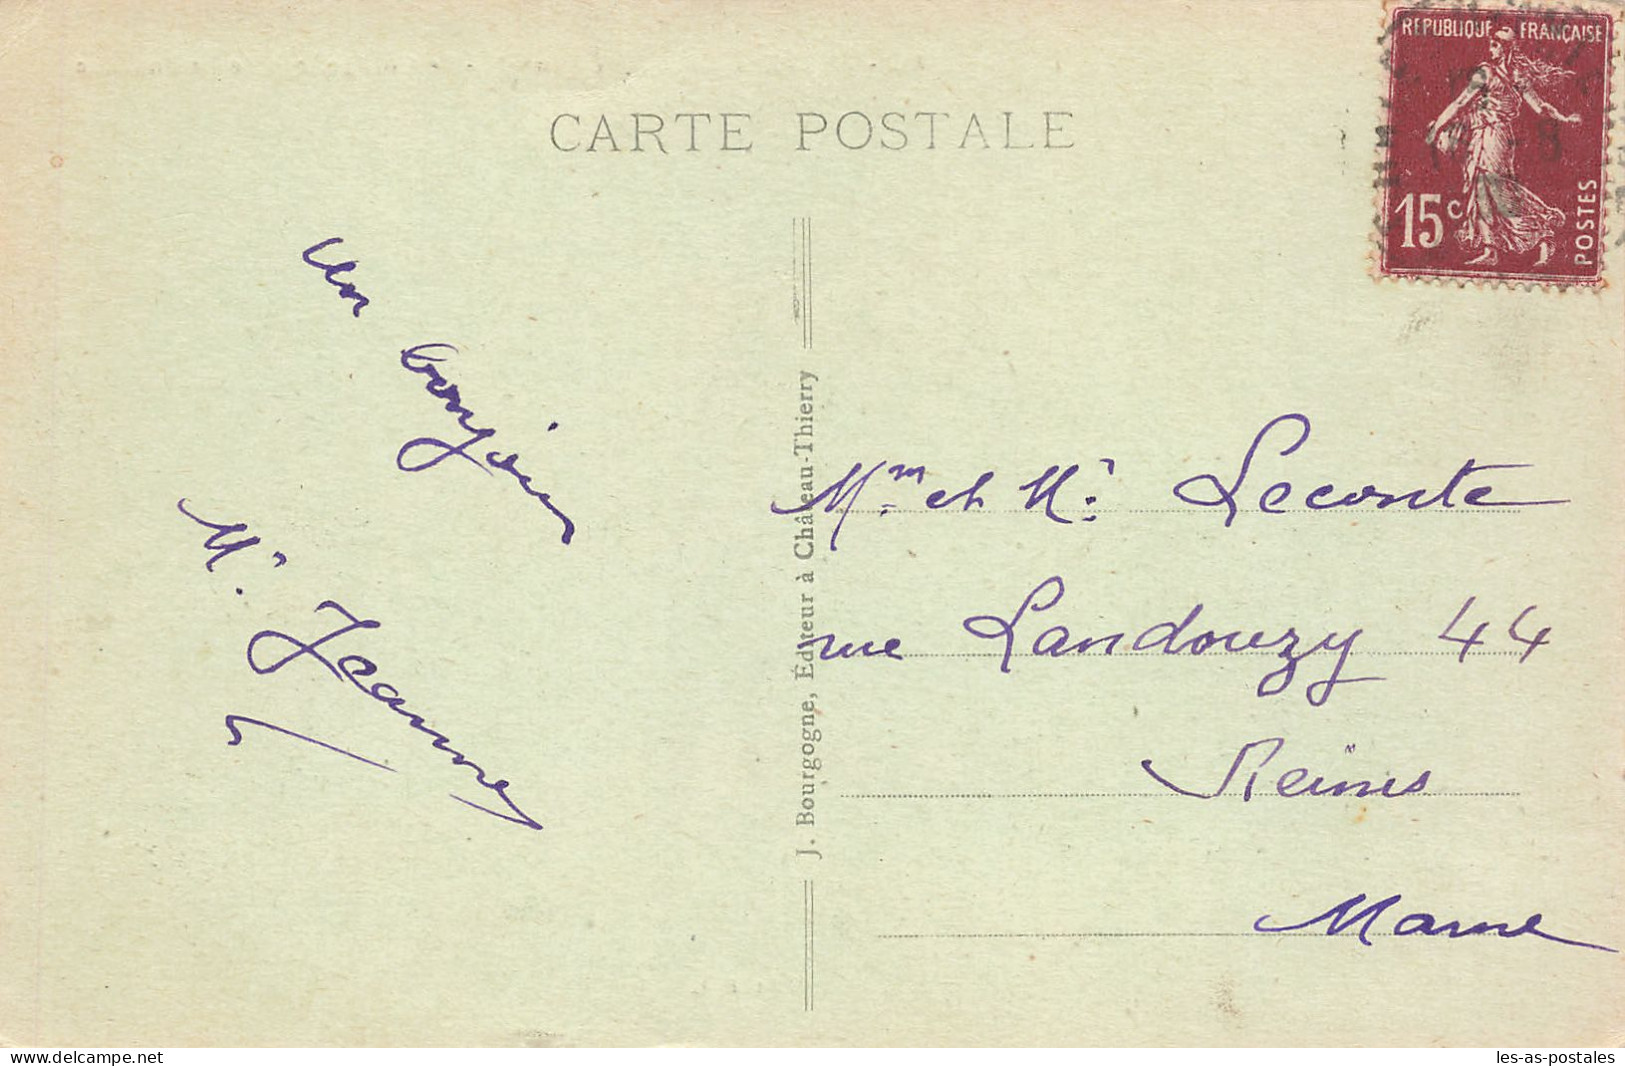 CARTE POSTALE
REPUBLIQUE FRANÇAISE
15c
POSTES
Un bonjour
Mr. Jeanne
J. Bourgogne, Éditeur à Château-Thierry
Mm. et Mr. Leconte
rue Landouzy 44
Reims
Marne
delcampe.net
les-as-postales